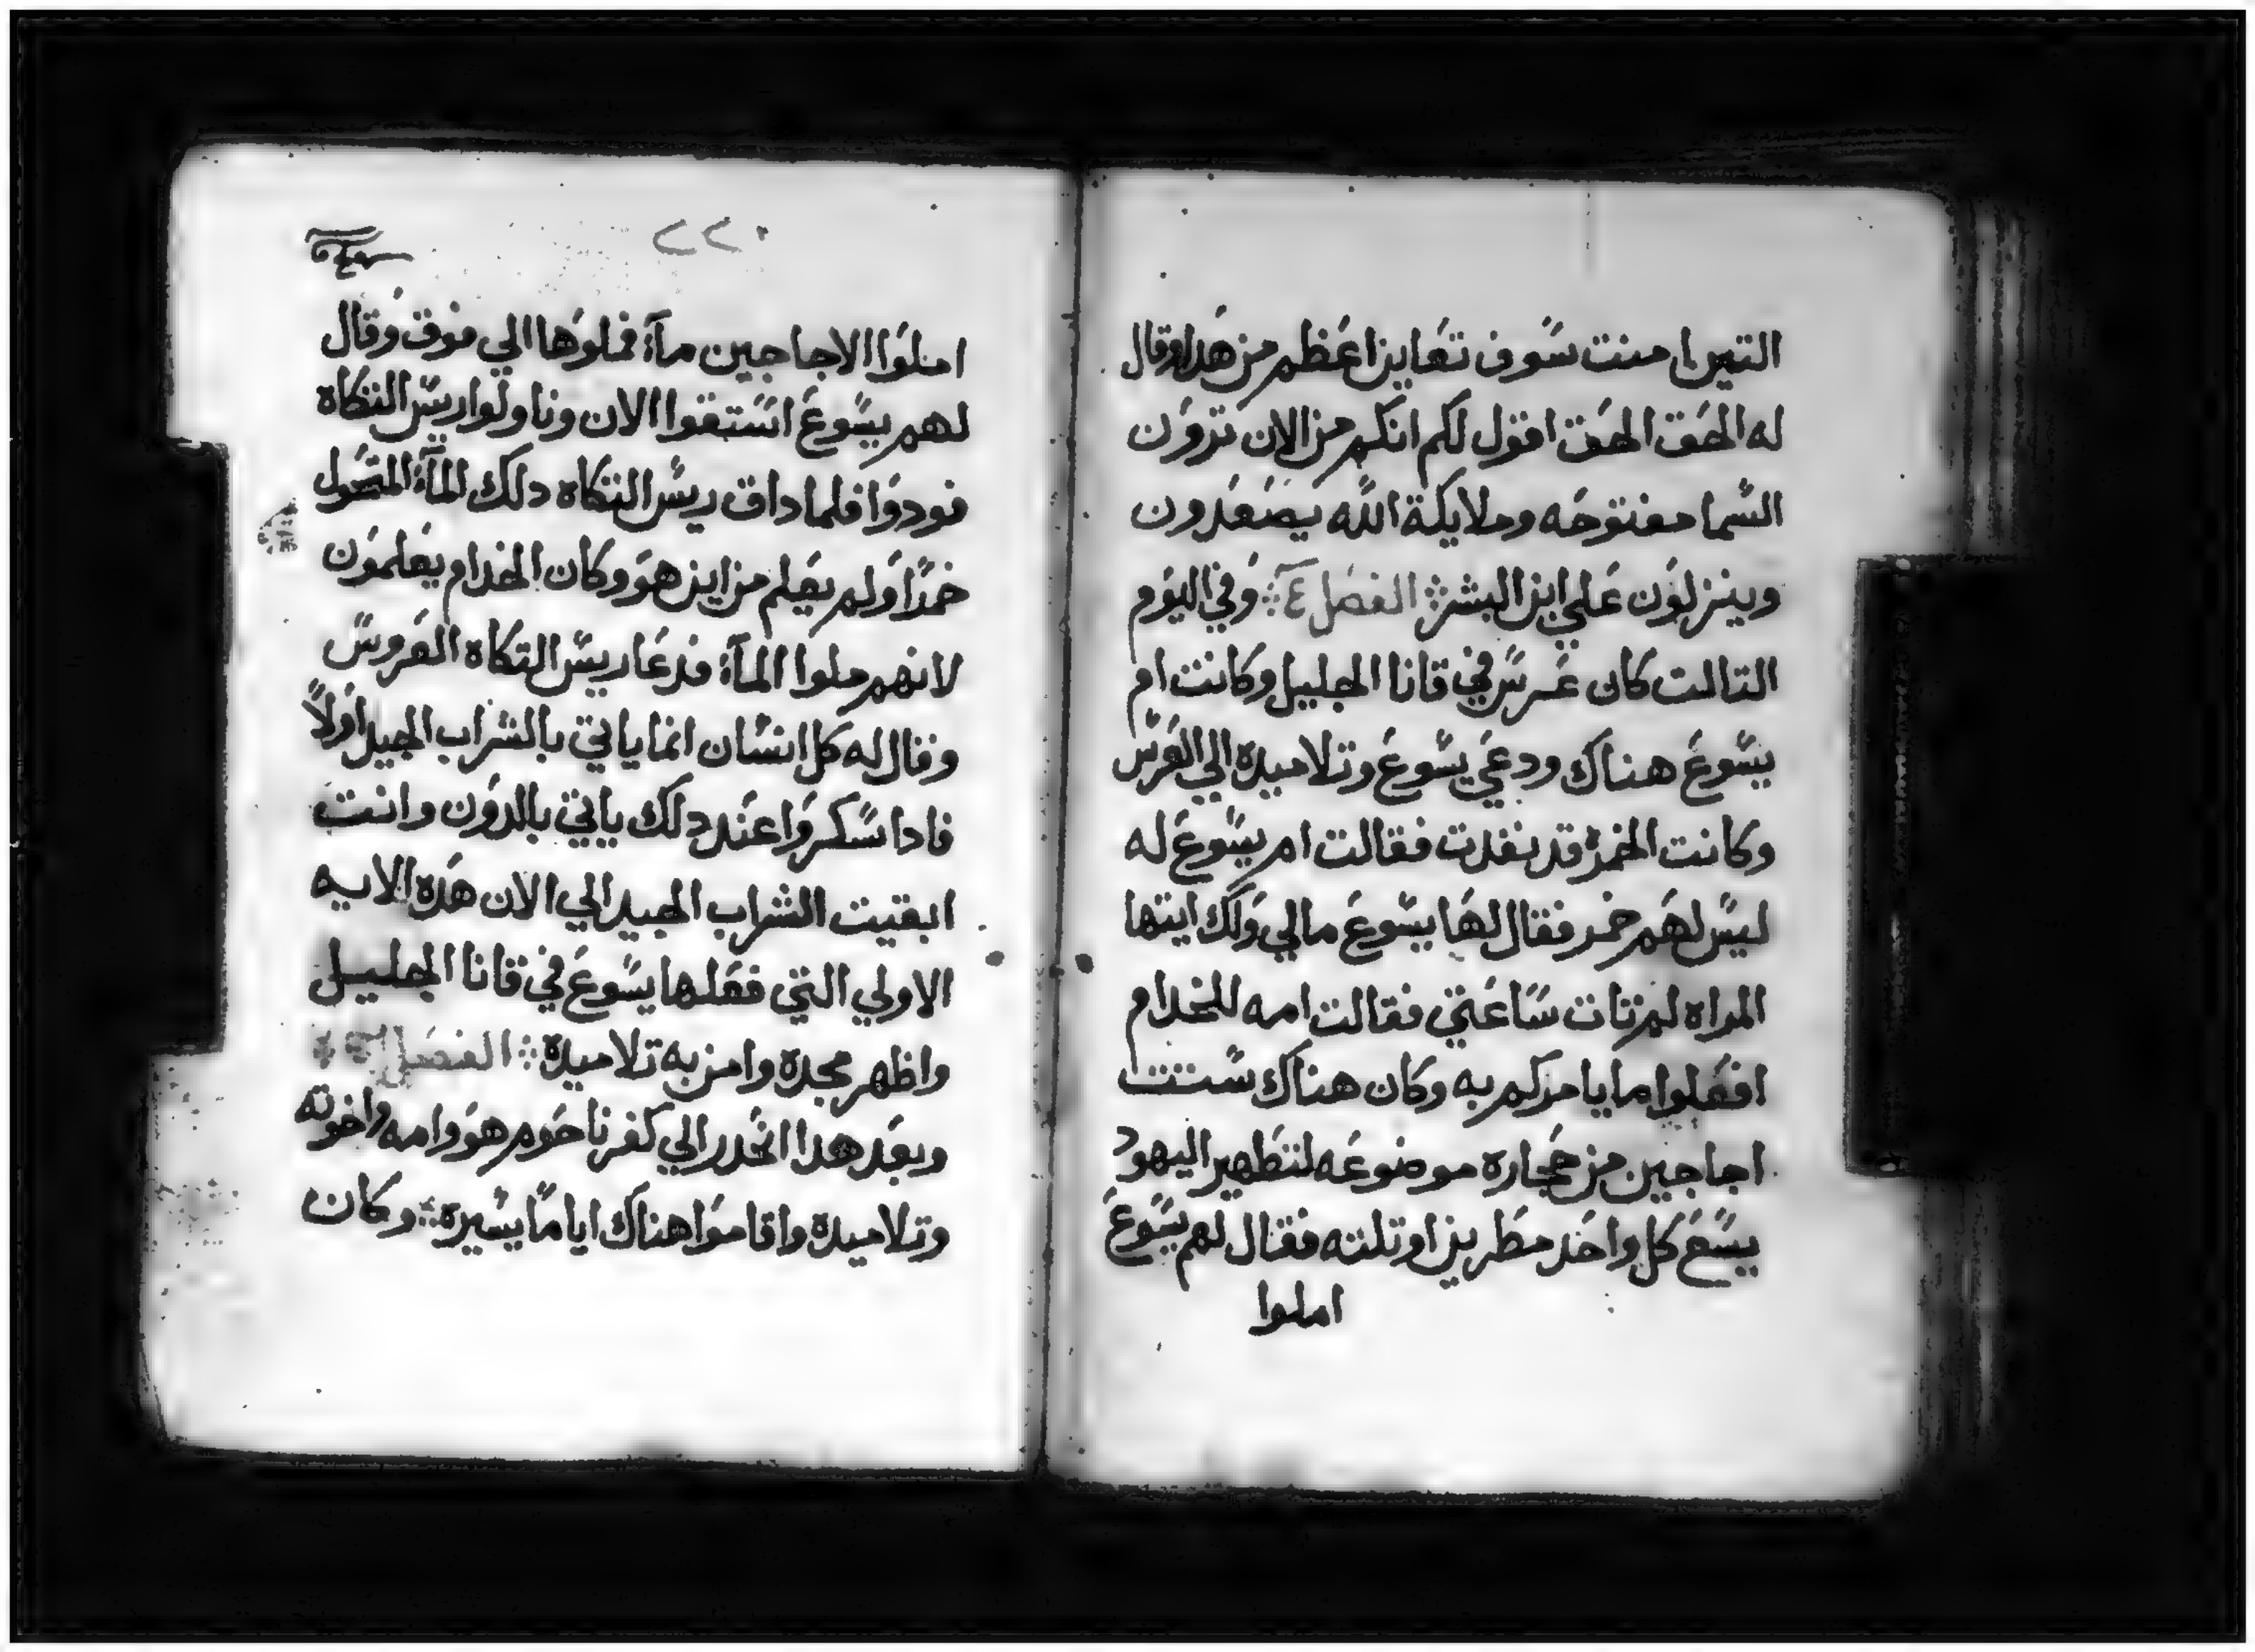 التين امنت سوف تعاين اعظم من هدا وقال
له الحق الحق اقول لكم انكم من الان ترون
السما مفتوحه وملايكة الله يصعدون
وينزلون علي ابن البشر ❖ الفصل ٤ ❖ وفي اليوم
التالت كان عرس في قانا الجليل وكانت ام
يسوع هناك ودعي يسوع وتلاميده الي العرس
وكانت الخمرة قد نفدت فقالت ام يسوع له
ليس لهم خمر فقال لها يسوع مالي ولك ايتها
المراه لم تات ساعتي فقالت امه للخدام
افعلوا ما يامركم به وكان هناك ستت
اجاجين من حجاره موضوعه لتطهير اليهود
يسع كل واحد مطرين او تلته فقال لهم يسوع
املوا
٢٢٠
املوا الاجاجين مآء فملوها الي فوق وقال
لهم يسوع استقوا الان وناولوا ريس التكاه
فودوا فلما داق ريس التكاه دلك المآء المتحول
خمرًا ولم يعلم من اين هو وكان الخدام يعلمون
لانهم ملوا المآء فدعا ريس التكاه العروس
وقال له كل انسان انما ياتي بالشراب الجيد اولاً
فادا سكروا عند دلك ياتي بالدون وانت
ابقيت الشراب الجيد الي الان هده الايه
الاولي التي فعلها يسوع في قانا الجليل
واظهر مجده وامن به تلاميده ❖ الفصل
وبعد هدا انحدر الي كفرناحوم هو وامه واخوته
وتلاميده واقاموا هناك اياما يسيره ❖ وكان